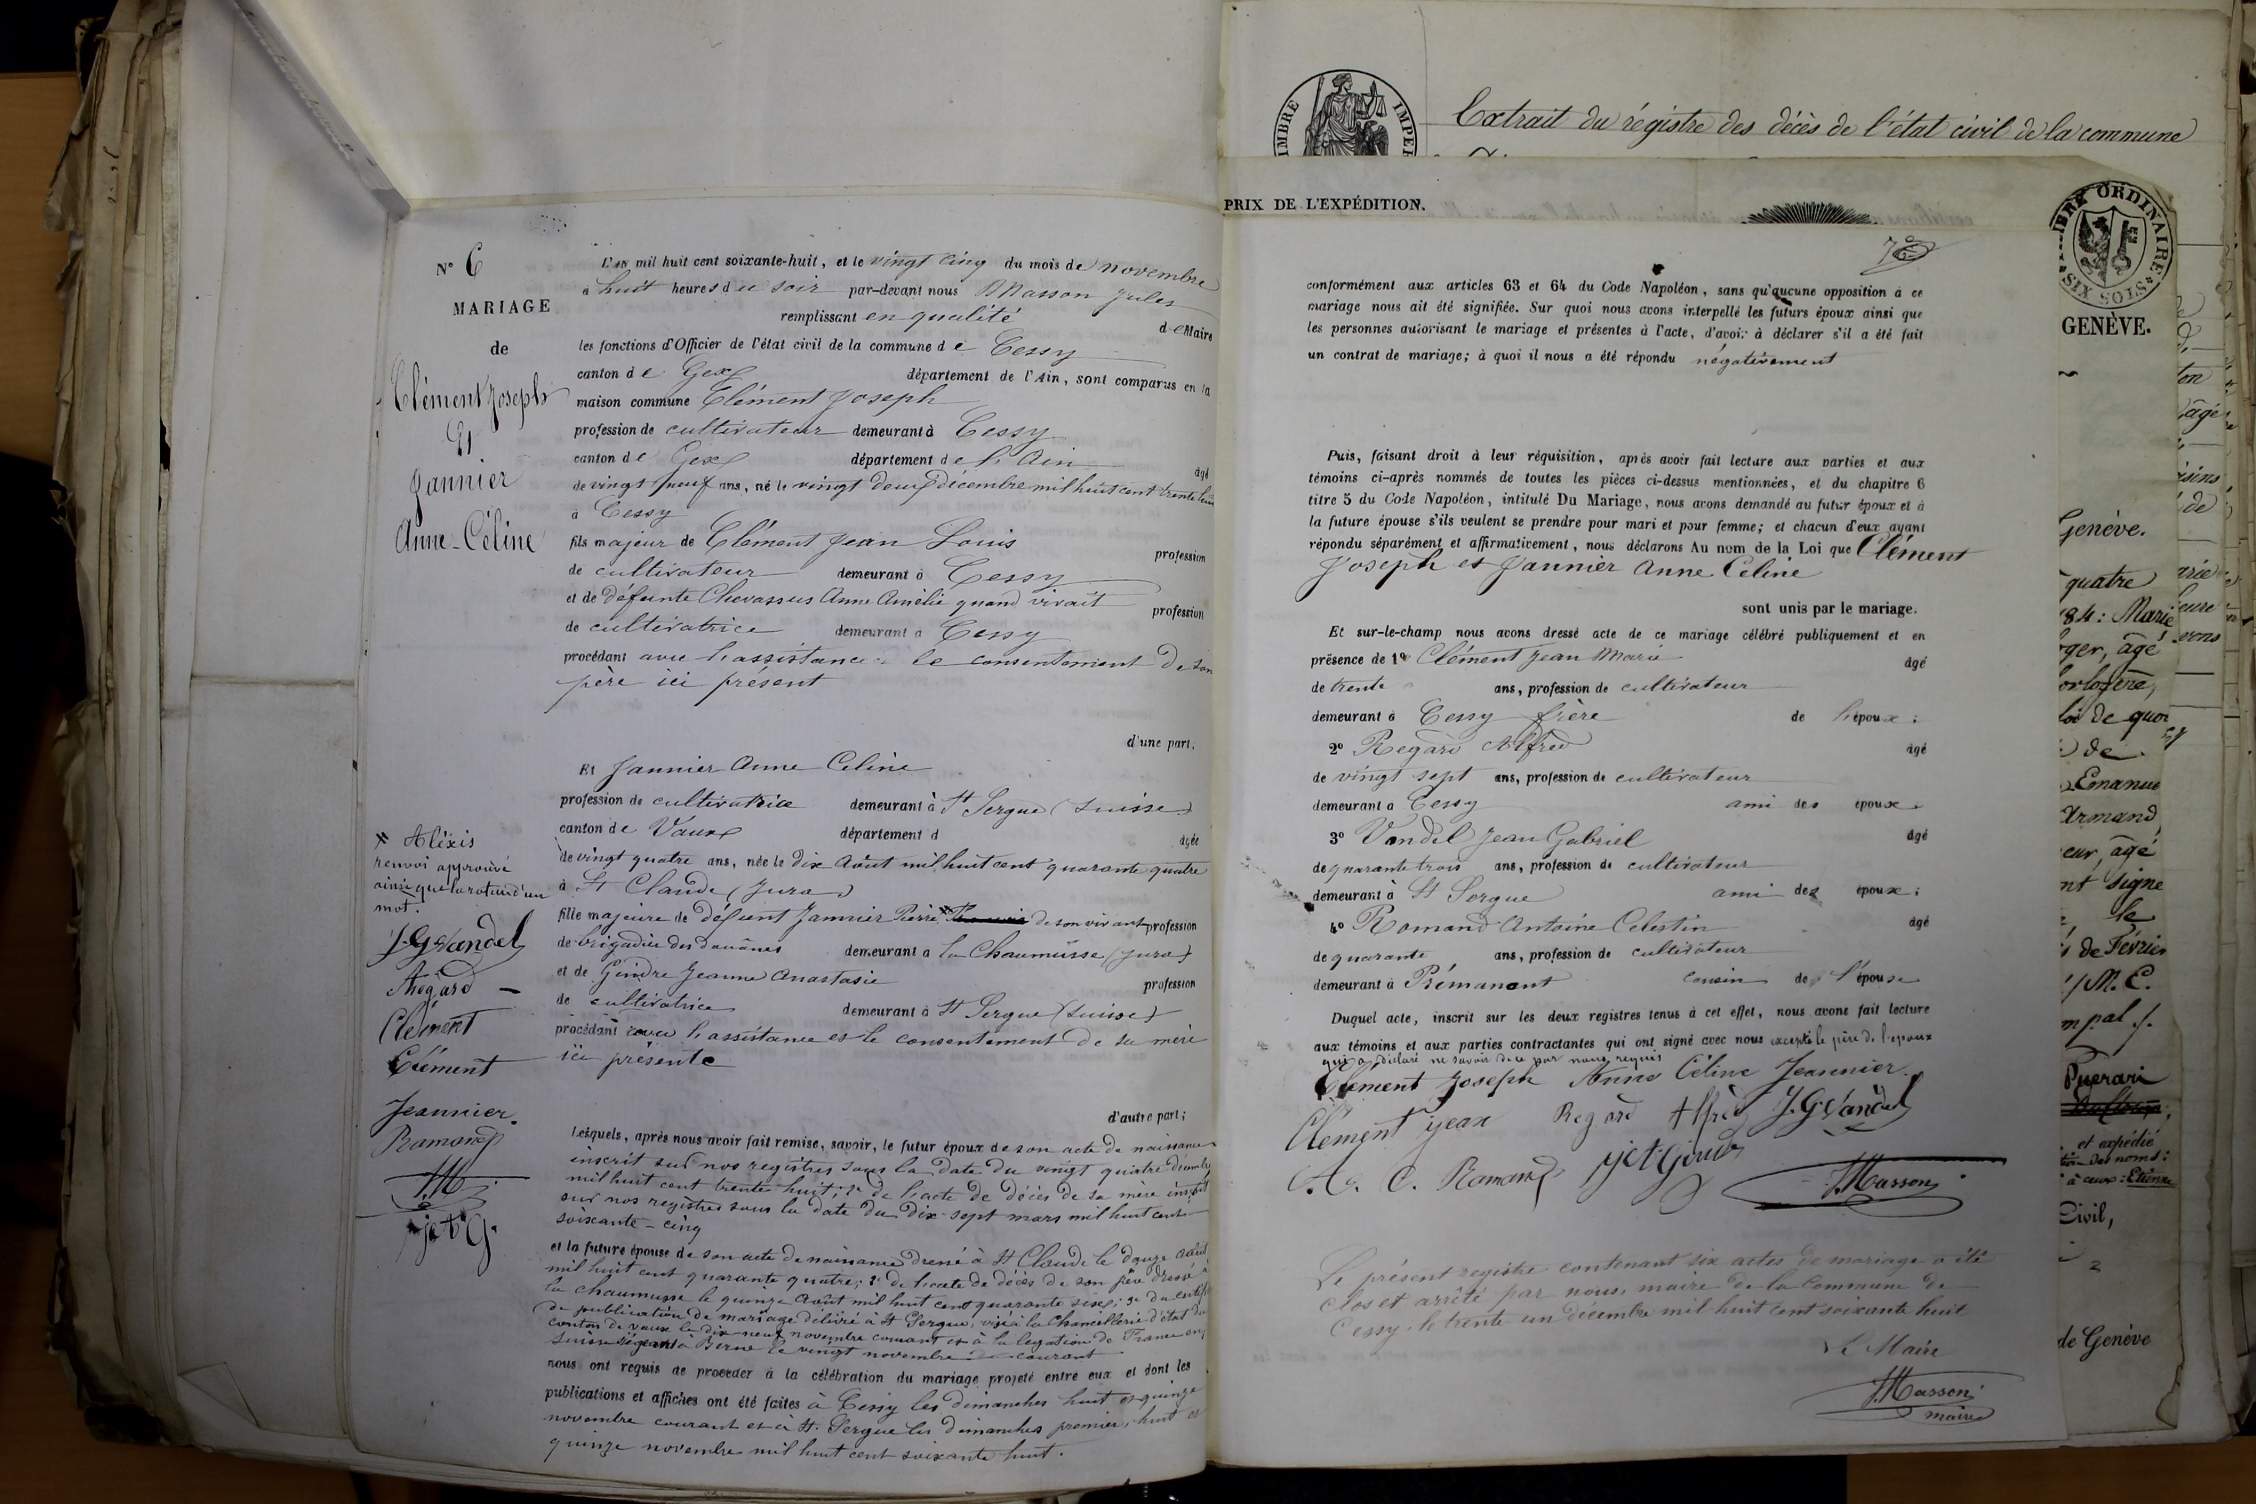 N° 6
MARIAGE
de
Clément Joseph
Et
Jannier
Anne-Céline
L'an mil huit cent soixante-huit, et le vingt cinq du mois de novembre
a huit heures du soir par-devant nous Masson Jules
remplissant en qualité de Maire
les fonctions d'Officier de l'état civil de la commune de Cessy
canton de Gex département de l'Ain, sont comparus en la
maison commune Clément Joseph
profession de cultivateur demeurant à Cessy
canton de Gex département de l'Ain âgé
de vingt neuf ans, né le vingt deux décembre mil huit cent trente huit
à Cessy
fils majeur de Clément Jean Louis profession
de cultivateur demeurant à Cessy
et de défunte Chevassus Anne Amélie quand vivait profession
de cultivatrice demeurant à Cessy
procédant avec l'assistance le consentement de son
père ici présent
d'une part.
Et Jannier Anne Celine
profession de cultivatrice demeurant à St Sergue (Suisse)
canton de Vaux département d âgée
de vingt quatre ans, née le dix Août mil huit cent quarante quatre
à St Claude (Jura)
fille majeure de défunt Jannier Pierre de son vivant profession
de brigadier des douânes demeurant a la Chaumusse (Jura)
et de Gindre Jeanne Anastasie profession
de cultivatrice demeurant à St Sergue (Suisse)
procédant avec l'assistance et le consentement de sa mère
ici présente
d'autre part;
# Aléxis
renvoi approuvé
ainsi que la rature d'un
mot.
J-G Vandel
ARegard
Clément
Clément
Jeannier
Ramand
JM
JetG.
Lesquels, après nous avoir fait remise, savoir, le futur époux de son acte de naissance
inscrit sur nos registres sous la date du vingt quatre décembre
mil huit cent trente huit; 2° de l'acte de décès de sa mère inscrit
sur nos registres sous la date du dix-sept mars mil huit cent
soixante-cinq
et la future épouse de son acte de naissance dressé à St Claude le douze Août
mil huit cent quarante quatre; 2° de l'acte de décès de son père dressé à
la chaumusse le quinze Août mil huit cent quarante six; 3° du certificat
de publication de mariage délivré à St Sergue, visé à la Chancellerie d'état du
canton de vaux le dix neuf novembre courant et à la légation de France en
Suisse siégeant à Berne le vingt novembre courant
nous ont requis de procéder à la célébration du mariage projeté entre eux et dont les
publications et affiches ont été faites à Cessy les dimanches huit et quinze
novembre courant et à St Sergue les dimanches premier, huit et
quinze novembre mil huit cent soixante huit.
TIMBRE IMPER
Extrait du régistre des décès de l'état civil de la commune
PRIX DE L'EXPÉDITION.
conformément aux articles 63 et 64 du Code Napoléon, sans qu'aucune opposition à ce
mariage nous ait été signifiée. Sur quoi nous avons interpellé les futurs époux ainsi que
les personnes autorisant le mariage et présentes à l'acte, d'avoir à déclarer s'il a été fait
un contrat de mariage; à quoi il nous a été répondu négativement
Puis, faisant droit à leur réquisition, après avoir fait lecture aux parties et aux
témoins ci-après nommés de toutes les pièces ci-dessus mentionnées, et du chapitre 6
titre 5 du Code Napoléon, intitulé Du Mariage, nous avons demandé au futur époux et à
la future épouse s'ils veulent se prendre pour mari et pour femme; et chacun d'eux ayant
répondu séparément et affirmativement, nous déclarons Au nom de la Loi que Clément
Joseph et Jannier Anne Celine
sont unis par le mariage.
Et sur-le-champ nous avons dressé acte de ce mariage célébré publiquement et en
présence de 1° Clément Jean Marie âgé
de trente ans, profession de cultivateur
demeurant à Cessy frère de l'époux;
2° Regard Alfred âgé
de vingt sept ans, profession de cultivateur
demeurant à Cessy ami des époux.
3° Vandel Jean Gabriel âgé
de quarante trois ans, profession de cultivateur
demeurant à St Sergue ami des époux;
4° Romand Antoine Celestin âgé
de quarante ans, profession de cultivateur
demeurant à Prémanont cousin de l'épouse
Duquel acte, inscrit sur les deux registres tenus à cet effet, nous avons fait lecture
aux témoins et aux parties contractantes qui ont signé avec nous excepté le père de l'époux
qui a déclaré ne savoir de ce par nous requis
Clément Joseph Anne Céline Jeannier.
Clément Jean Regard Alfred J.G. Vandel
A. C. Ramand
JMasson
Le présent registre contenant six actes de mariage a été
clos et arrêté par nous, maire de la Commune de
Cessy, le trente un décembre mil huit cent soixante huit
Le Maire
JMasson
maire
TIMBRE ORDINAIRE
SIX SOLS
GENÈVE.
Genève.
quatre
84: Marie
âgé
de quoi
de
Emanue
Armand,
eur, âgé
signé
le
de Février
M. C.
Puerari
et expédié
des noms:
à ceux: Etienne
Civil,
de Genève